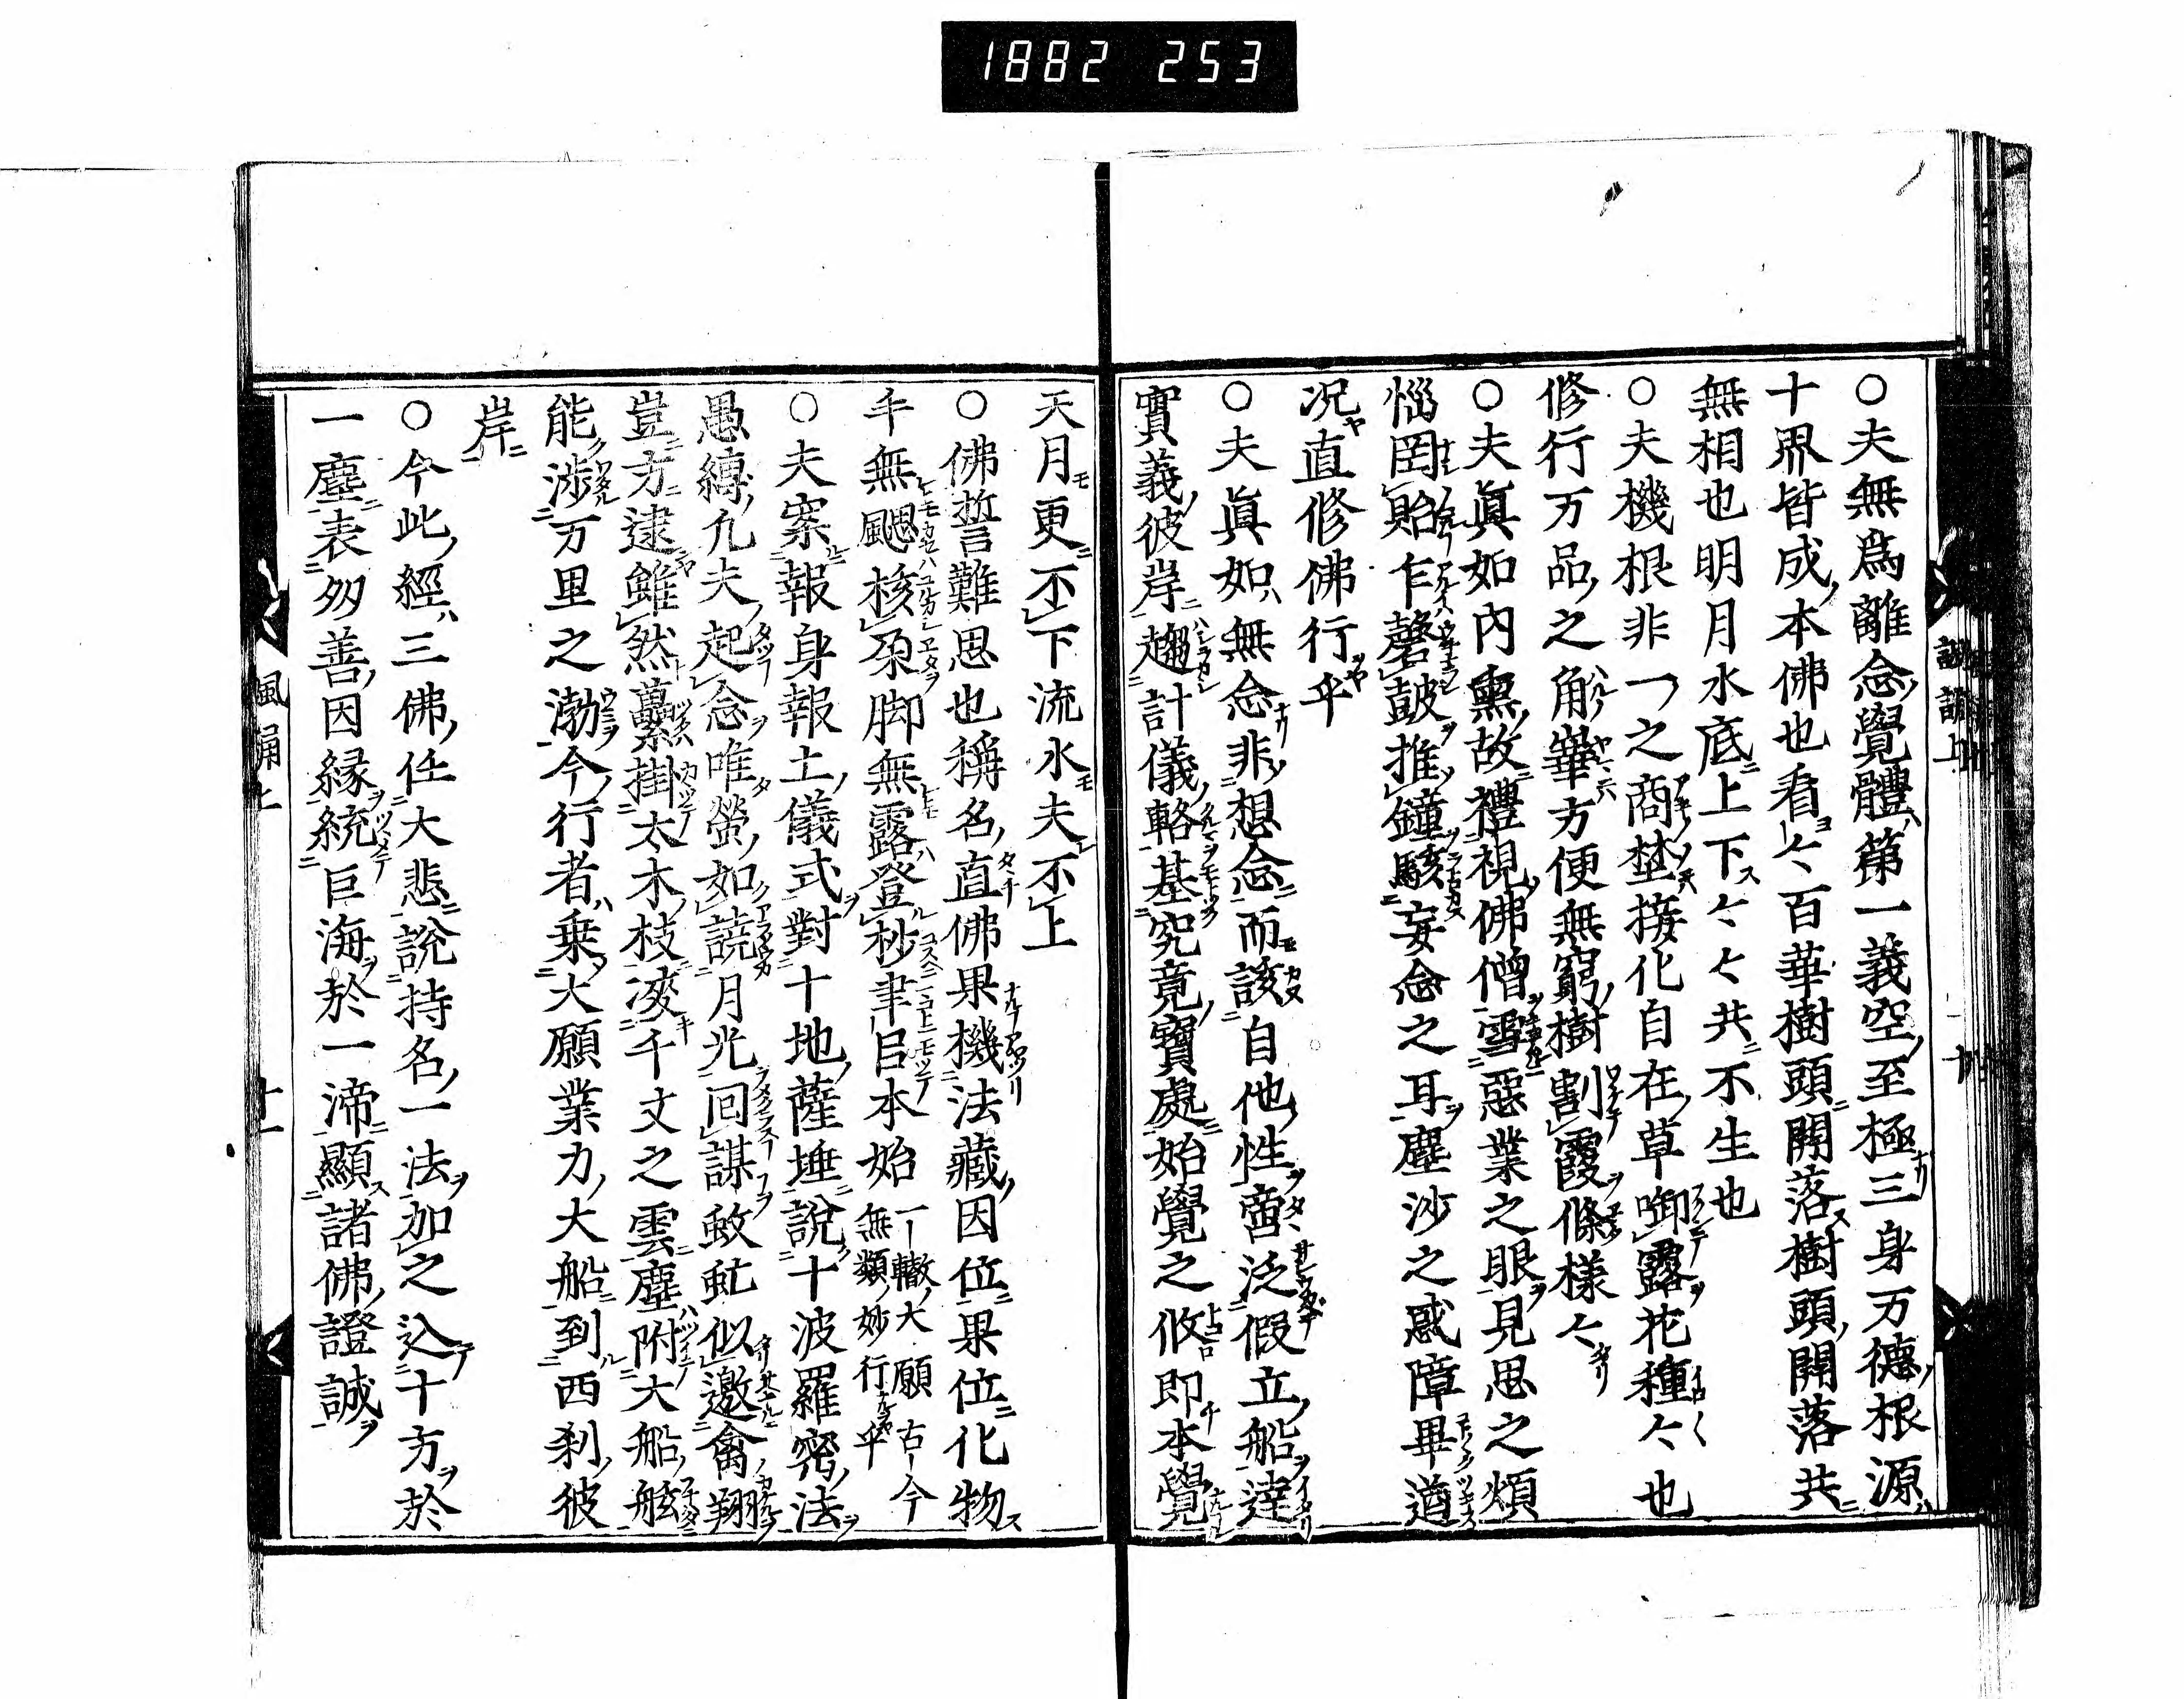 1882 253
諷誦上
十
○夫無爲離念覺體第一義空至極三身万德根源
十界皆成本佛也看〻百華樹頭開落樹頭開落共
無相也明月水底上下〻〻共不生也
○夫機根非一之商埜接化自在草啣露花種〻也
修行万品之角崋方便無窮樹割霞條樣〻
○夫眞如內熏故禮視佛僧雪惡業之眼見思之煩
惱罔貽乍磬皷推鐘駭妄念之耳塵沙之惑障畢遒
况直修佛行乎
○夫眞如無念非想念而該自他性啻泛假立船達
實義彼岸趣計儀輅基究竟寶處始覺之攸即本覺
天月更不下流水夫不上
○佛誓難思也稱名直佛果機法藏因位果位化物
年無颸核朶脚無露登杪聿㠯本始一轍大願古今無類妙行乎
○夫案報身報土儀式對十地薩埵說十波羅密法
愚縛凢夫起念唯螢如譊月光回謀蚊虻似邀禽翔
豈方逮雖然虆掛太木枝凌千丈之雲塵附大船舷
能涉万里之渤今行者乗大願業力大船到西刹彼
岸
○今此經三佛任大悲說持名一法加之込十方於
一塵表刕善因縁統巨海於一渧顯諸佛證誠
風誦上
十一